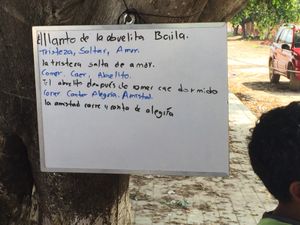 El llanto de la abuelita Baila.
Tristeza, Saltar, Amor.
la tristeza salta de amor.
Comer, Caer, Abuelito.
El abuelito después de comer cae dormido
Correr Cantar Alegría. Amistad.
la amistad corre y canta de alegría